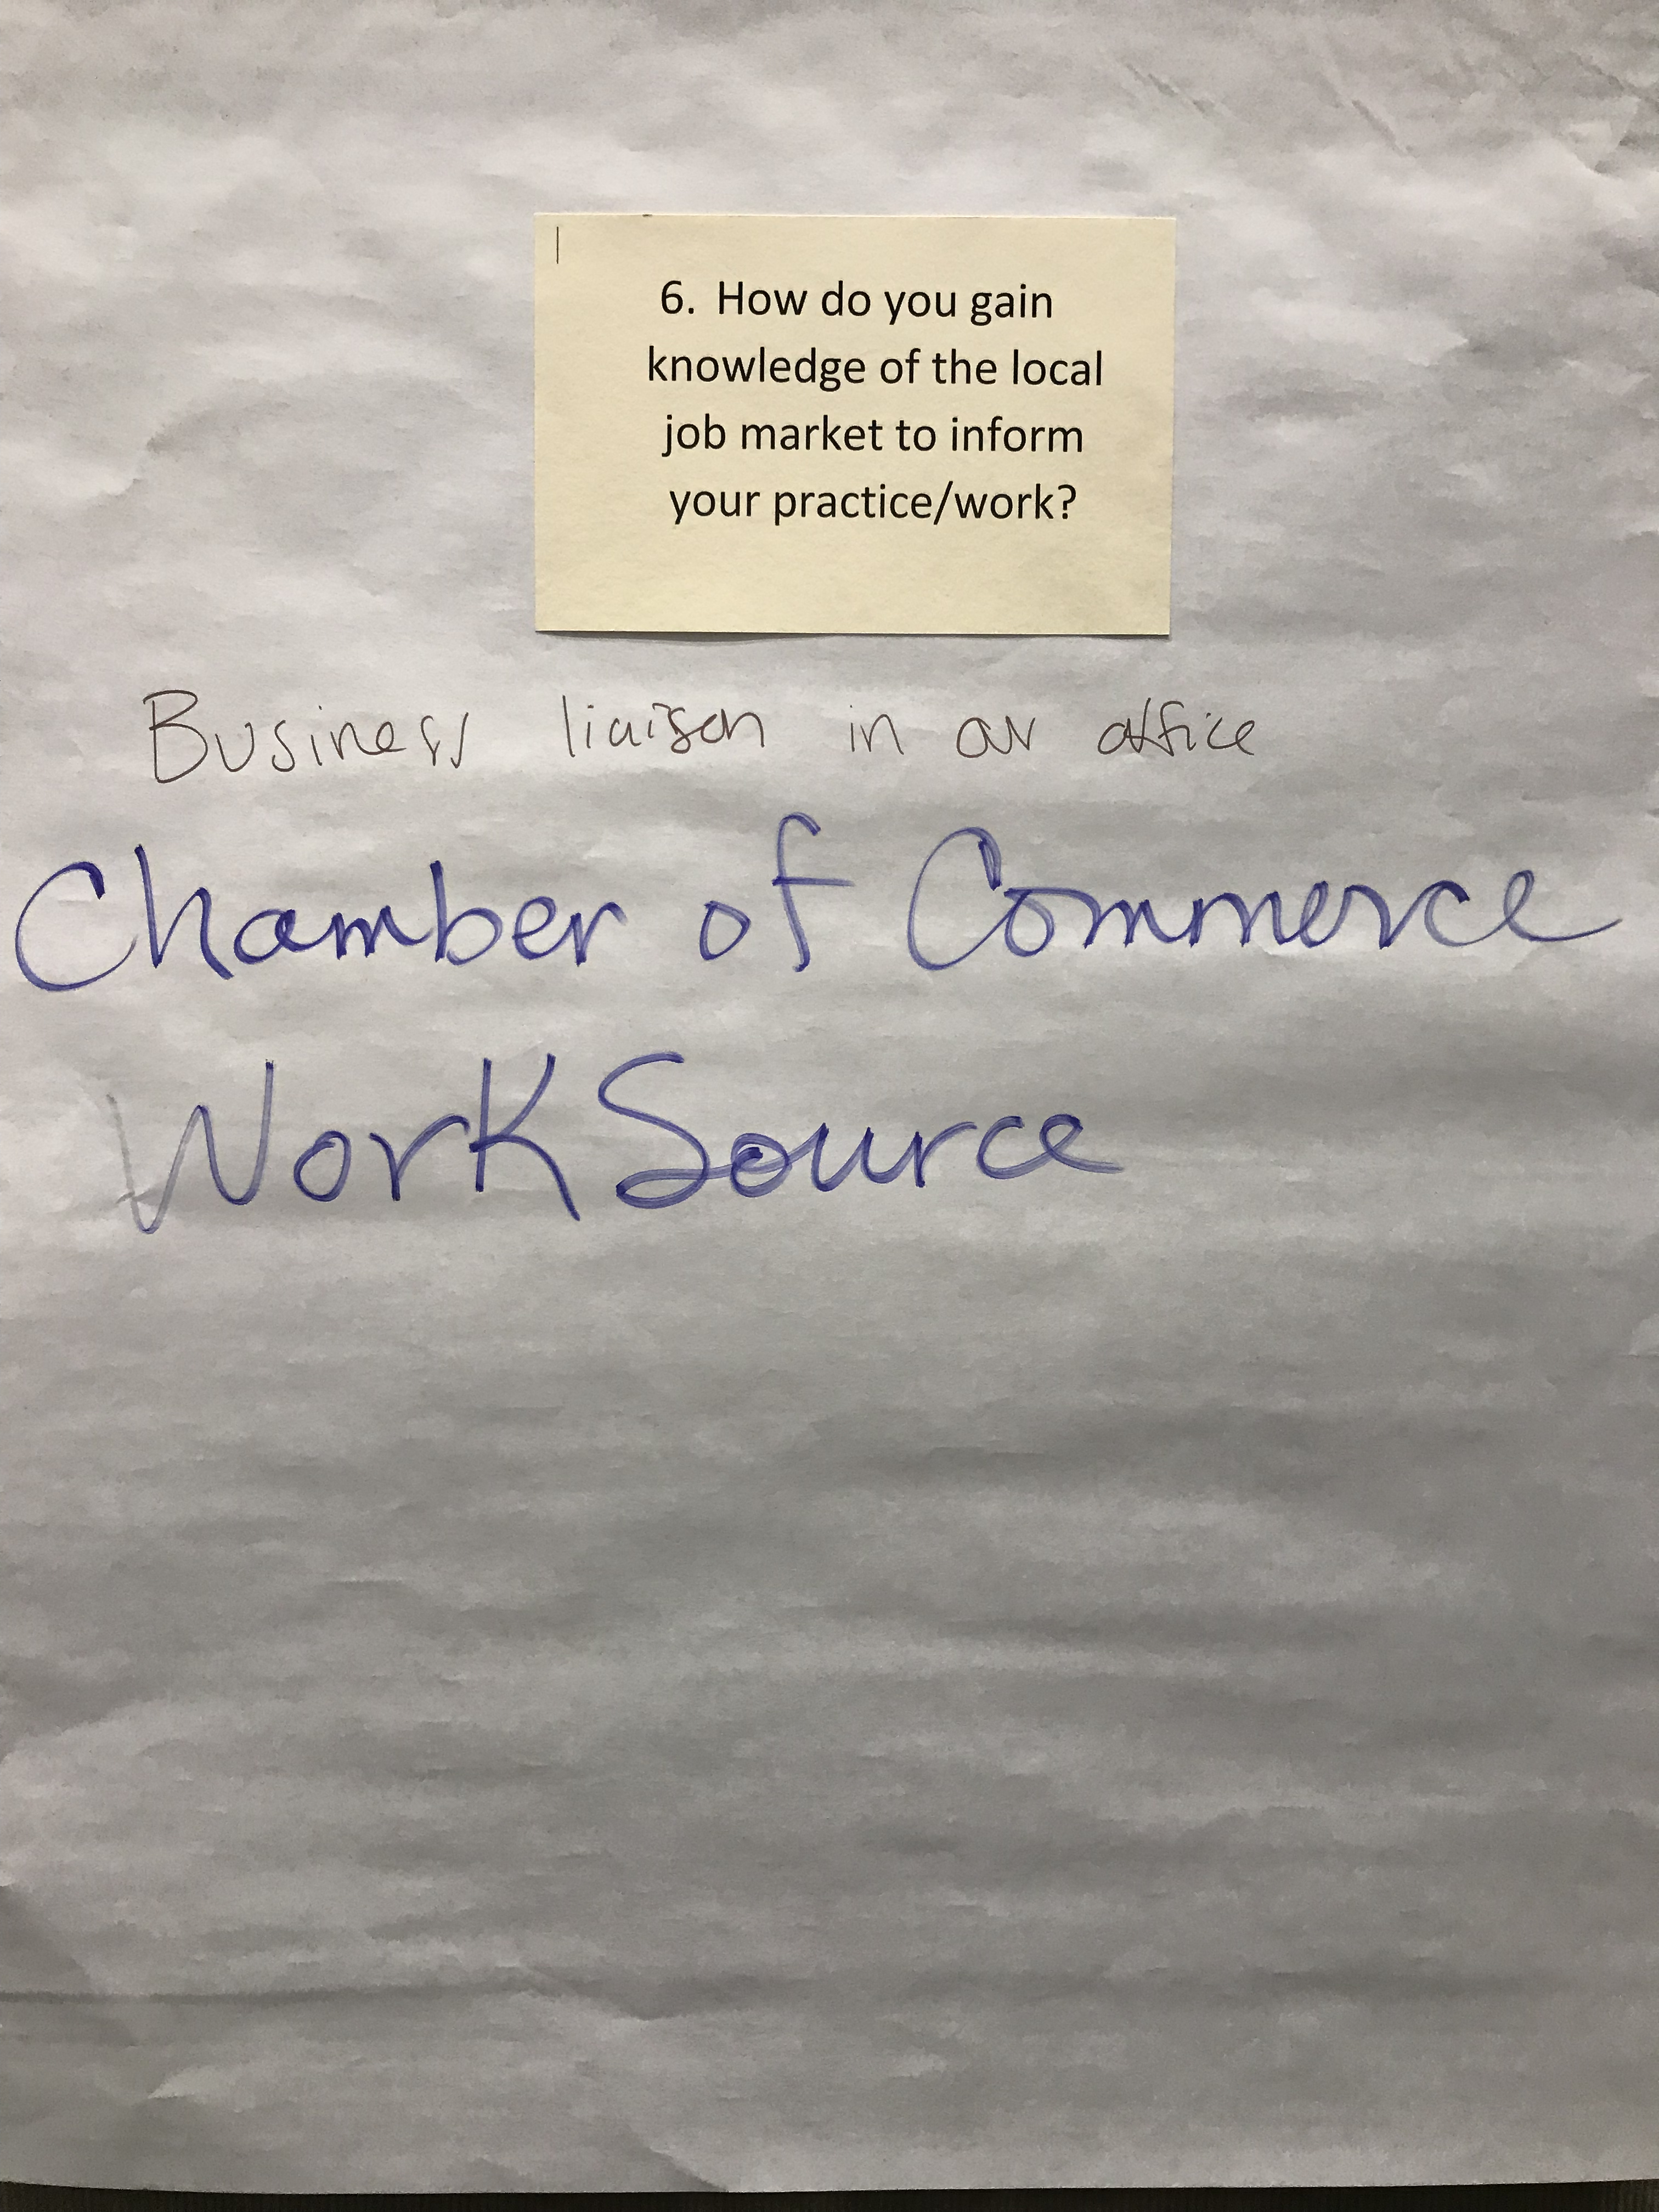 6. How do you gain
knowledge of the local
job market to inform
your practice/work?
Business liaison in our office
Chamber of Commerce
WorkSource